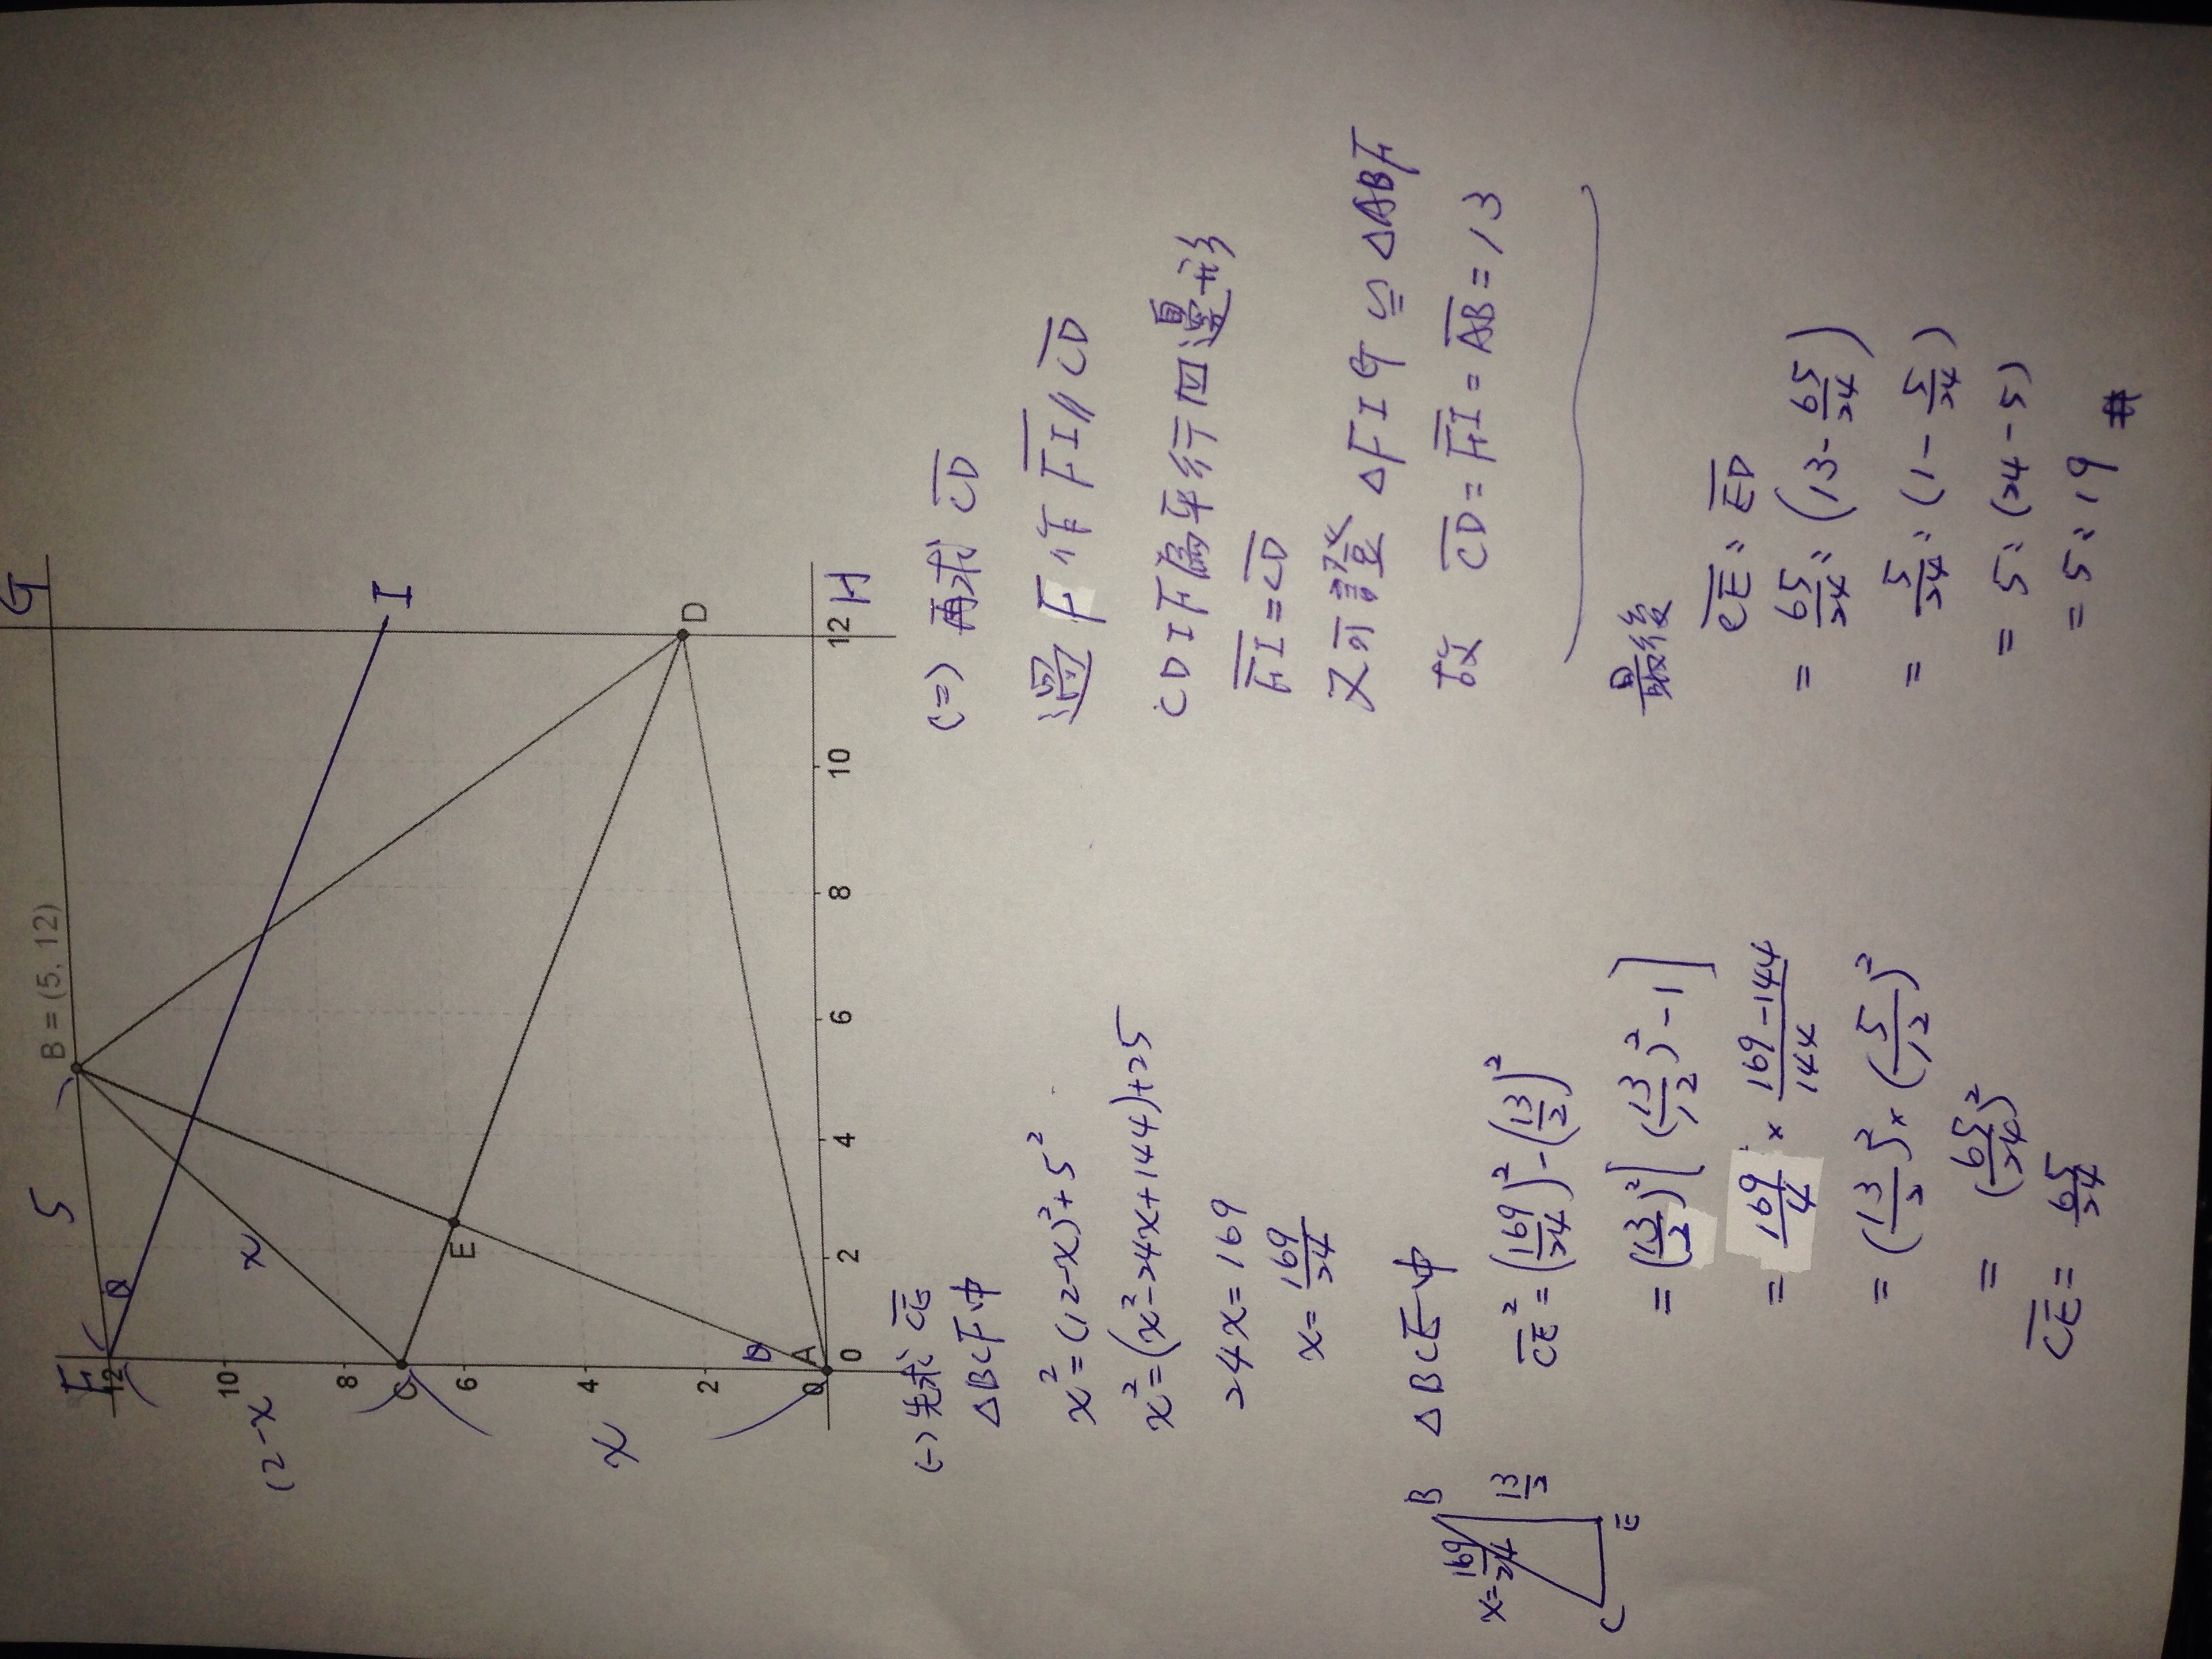 G
5
B = (5, 12)
F
12
θ
10
12-x
x
8
I
C
6
E
4
x
2
D
θ
0
A
0
2
4
6
8
10
12
H
(一) 先求 C̅E̅
△BCF中
x² = (12-x)² + 5²
x² = (x² - 24x + 144) + 25
24x = 169
x = 169/24
△BCE中
B
x = 169/24
13/2
C
E
C̅E̅² = (169/24)² - (13/2)²
= (13/2)² [ (13/12)² - 1 ]
= 169/4 × (169-144)/144
= (13/2)² × (5/12)²
= (65/24)²
C̅E̅ = 65/24
(二) 再求 C̅D̅
過F作 F̅I̅ // C̅D̅
CDIF為平行四邊形
F̅I̅ = C̅D̅
又可證 △FIG ≌ △ABF
故 C̅D̅ = F̅I̅ = A̅B̅ = 13
最後
C̅E̅ : E̅D̅
= 65/24 : (13 - 65/24)
= 5/24 : (1 - 5/24)
= 5 : (24-5)
= 5 : 19 #